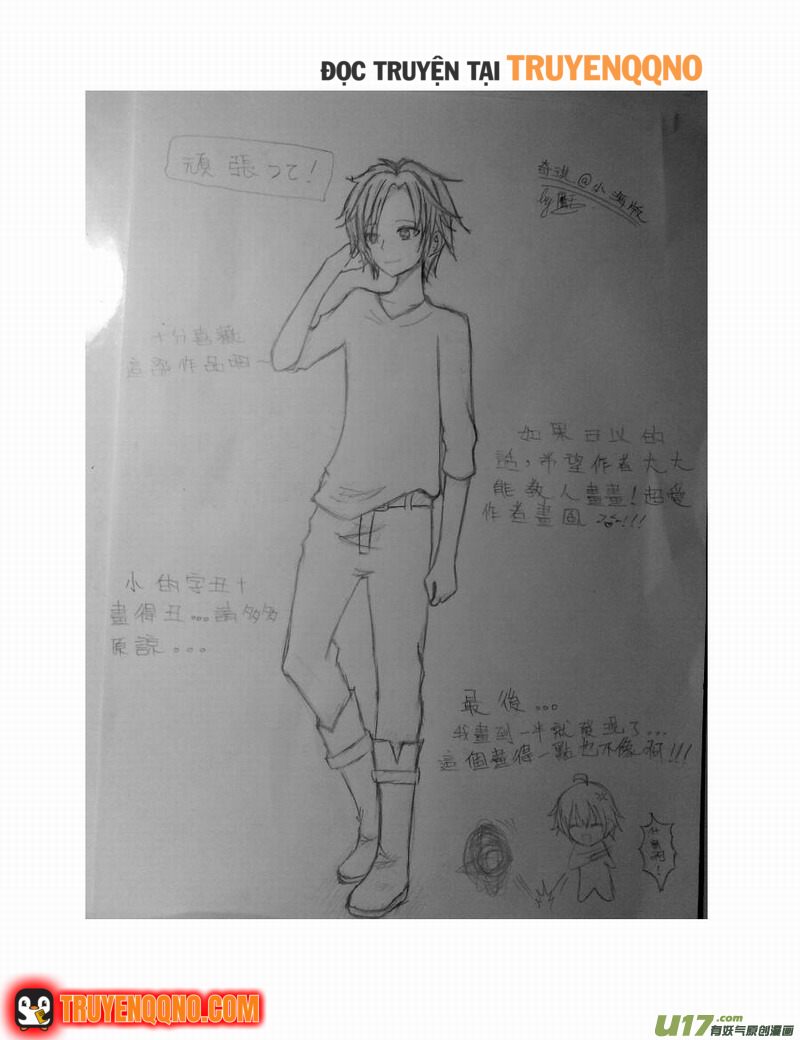 ĐỌC TRUYỆN TẠI TRUYENQQNO
頑張って!
奇洪@小海版
by
十分喜歡
這部作品喲~
如果可以的
話,希望作者大大
能教人畫畫!超愛
作者畫風
!!!
小的字丑+
畫得丑...請多多
原諒...
最後...
我畫到一半就發現了...
這個畫得一點也不像啊!!!
TRUYENQQNO.COM
U17.com
有妖气原创漫画